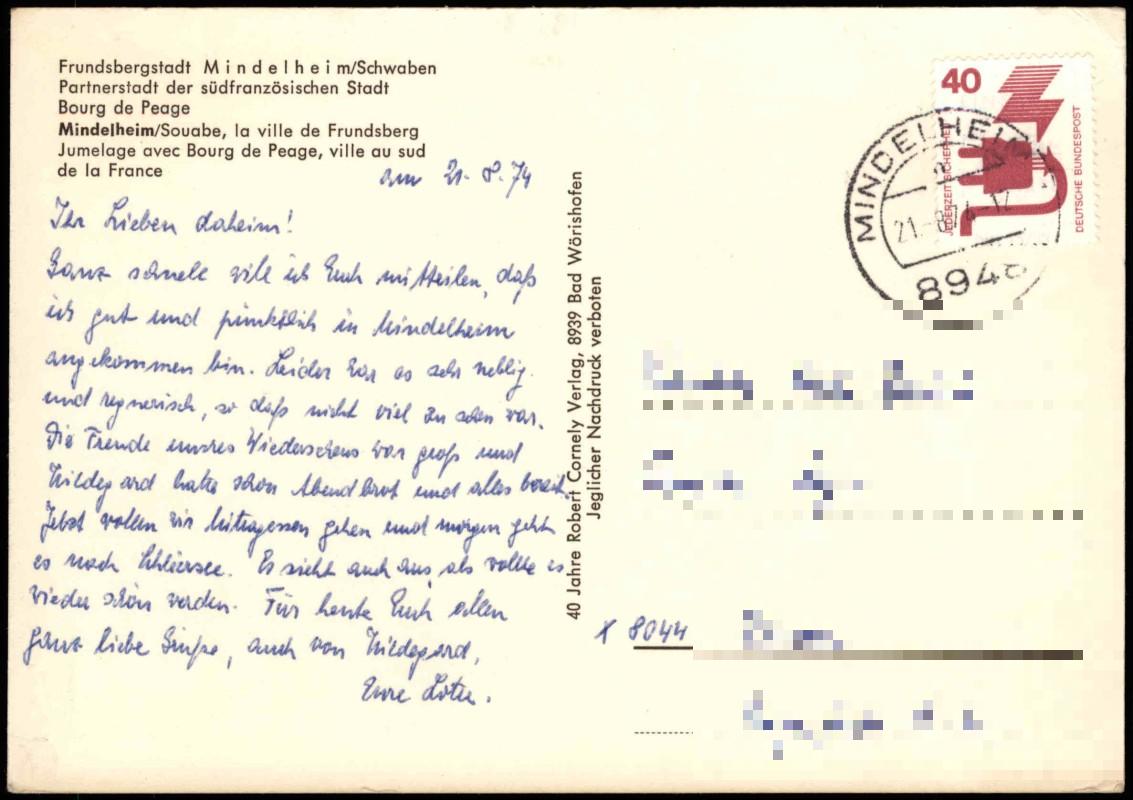 Frundsbergstadt Mindelheim/Schwaben
Partnerstadt der südfranzösischen Stadt
Bourg de Peage
Mindelheim/Souabe, la ville de Frundsberg
Jumelage avec Bourg de Peage, ville au sud
de la France
am 21. 8. 74
Ihr Lieben daheim!
Ganz schnell will ich Euch mitteilen, daß
ich gut und pünktlich in Mindelheim
angekommen bin. Leider war es sehr neblig
und regnerisch, so daß nicht viel zu sehen war.
Die Freude unsres Wiedersehens war groß und
Hildegard hatte schon Abendbrot und alles bereit.
Jetzt wollen wir Mittagessen gehen und morgen geht
es nach Schliersee. Es sieht auch aus, als wollte es
wieder schön werden. Für heute Euch allen
ganz liebe Grüße, auch von Hildegard,
Eure
40 Jahre Robert Cornely Verlag, 8939 Bad Wörishofen
Jeglicher Nachdruck verboten
40
JEDERZEIT SICHERHEIT
DEUTSCHE BUNDESPOST
MINDELHEIM
21.-8.74-12
8948
X 8044